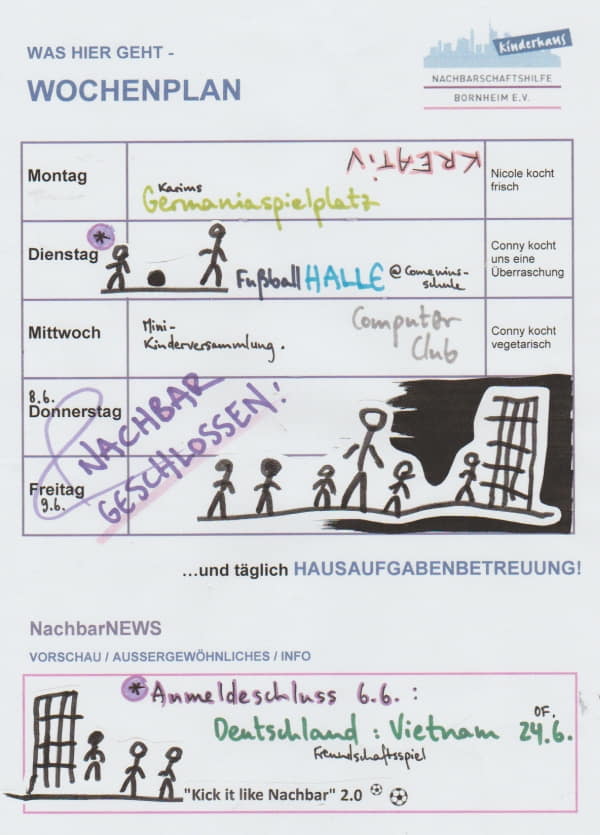 WAS HIER GEHT -
WOCHENPLAN
Kinderhaus
NACHBARSCHAFTSHILFE
BORNHEIM E.V.
Montag
KREATIV
Karims
Germaniaspielplatz
Nicole kocht
frisch
Dienstag *
Fußball HALLE @Comenius-
schule
Conny kocht
uns eine
Überraschung
Mittwoch
Mini-
Kinderversammlung.
Computer
Club
Conny kocht
vegetarisch
8.6.
Donnerstag
Freitag
9.6.
NACHBAR
GESCHLOSSEN!
...und täglich HAUSAUFGABENBETREUUNG!
NachbarNEWS
VORSCHAU / AUSSERGEWÖHNLICHES / INFO
* Anmeldeschluss 6.6.:
Deutschland : Vietnam 24.6.
OF.
Freundschaftsspiel
"Kick it like Nachbar" 2.0